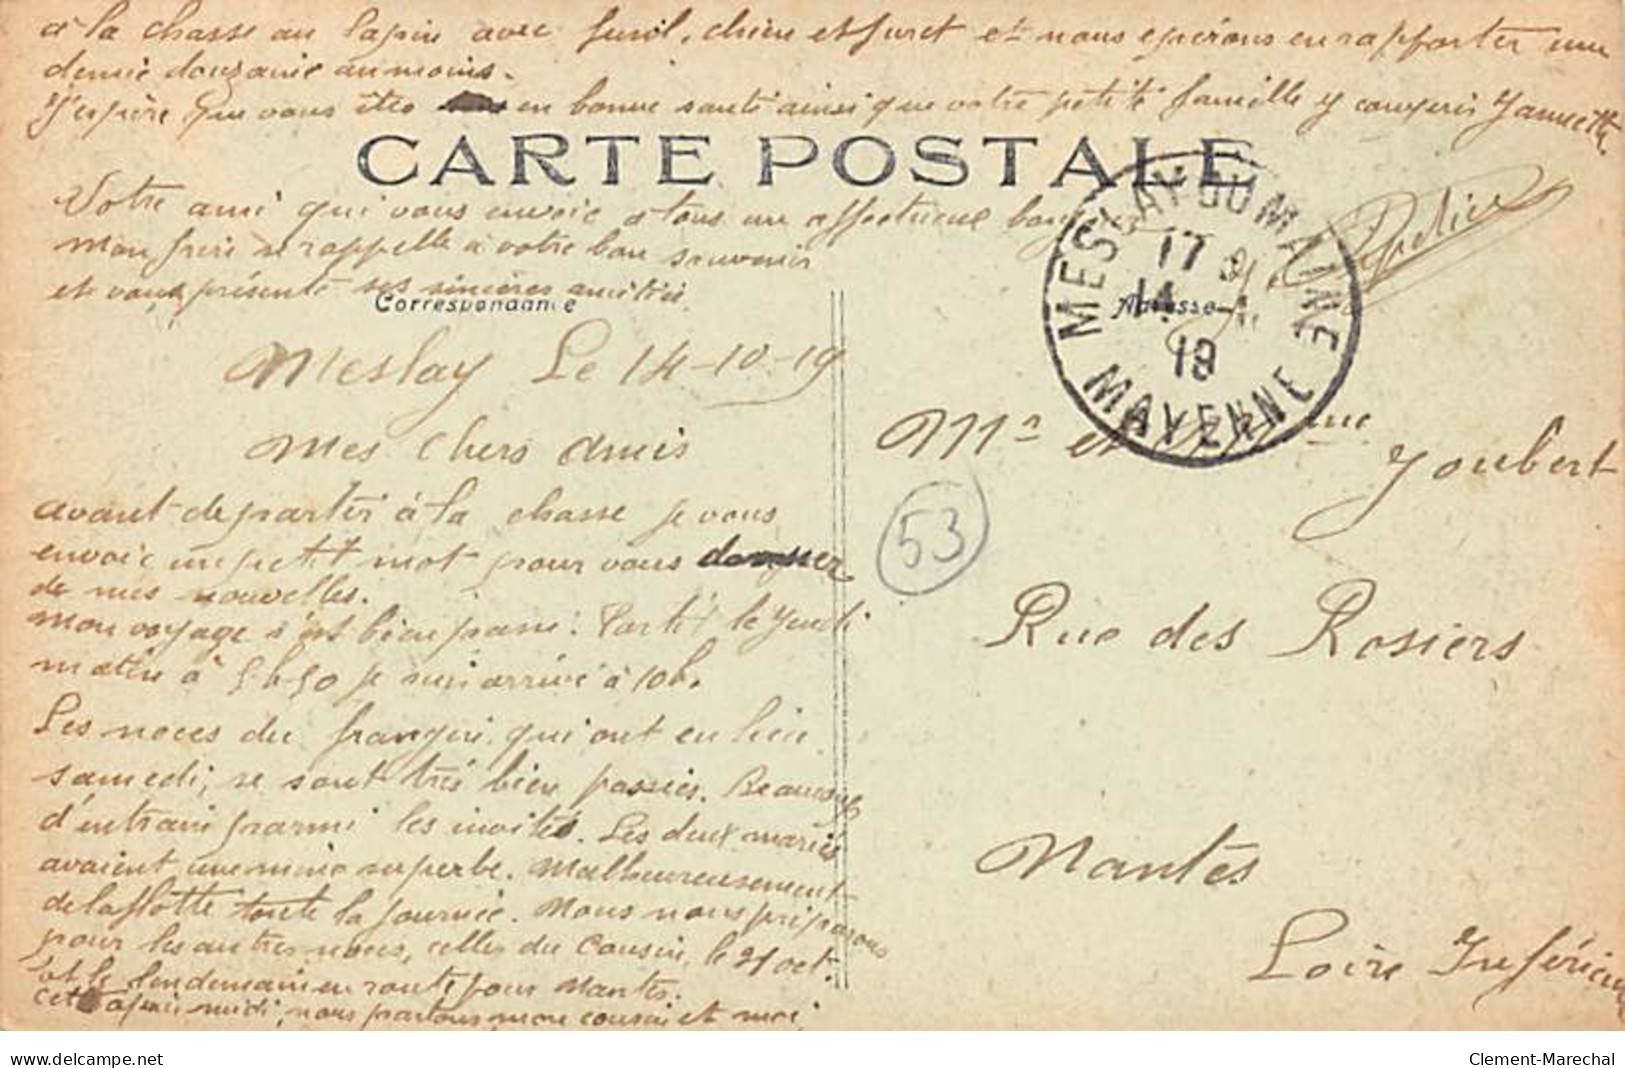 à la chasse au lapin avec fusil, chien et furet et nous espérons en rapporter une
demie douzaine au moins.
J'espère que vous êtes en bonne santé ainsi que votre petite famille y compris
CARTE POSTALE
Votre ami qui vous envoie à tous un affectueux
mon frère se rappelle à votre bon souvenir
et vous présente ses sincères amitiés.
Correspondance
Adresse
MESLAY-DU-MAINE
17
14
19
MAYENNE
Meslay Le 14-10-19
Mes Chers Amis
avant de partir à la chasse je vous
envoie un petit mot pour vous donner
de mes nouvelles.
mon voyage s'est bien passé. Parti le jeudi
matin à 5h50 je suis arrivé à 10h.
Les noces du frangin, qui ont eu lieu
samedi, se sont très bien passées. Beaucoup
d'entrain parmi les invités. Les deux mariés
avaient une mine superbe. Malheureusement
de la flotte toute la journée. Nous nous préparons
pour les autres noces, celles du Cousin, le 21 oct.
et le lendemain en route pour Nantes.
cet après midi, nous partons mon cousin et moi,
Mr et Mme Joubert
53
Rue des Rosiers
Nantes
Loire Inférieure
www.delcampe.net
Clement-Marechal